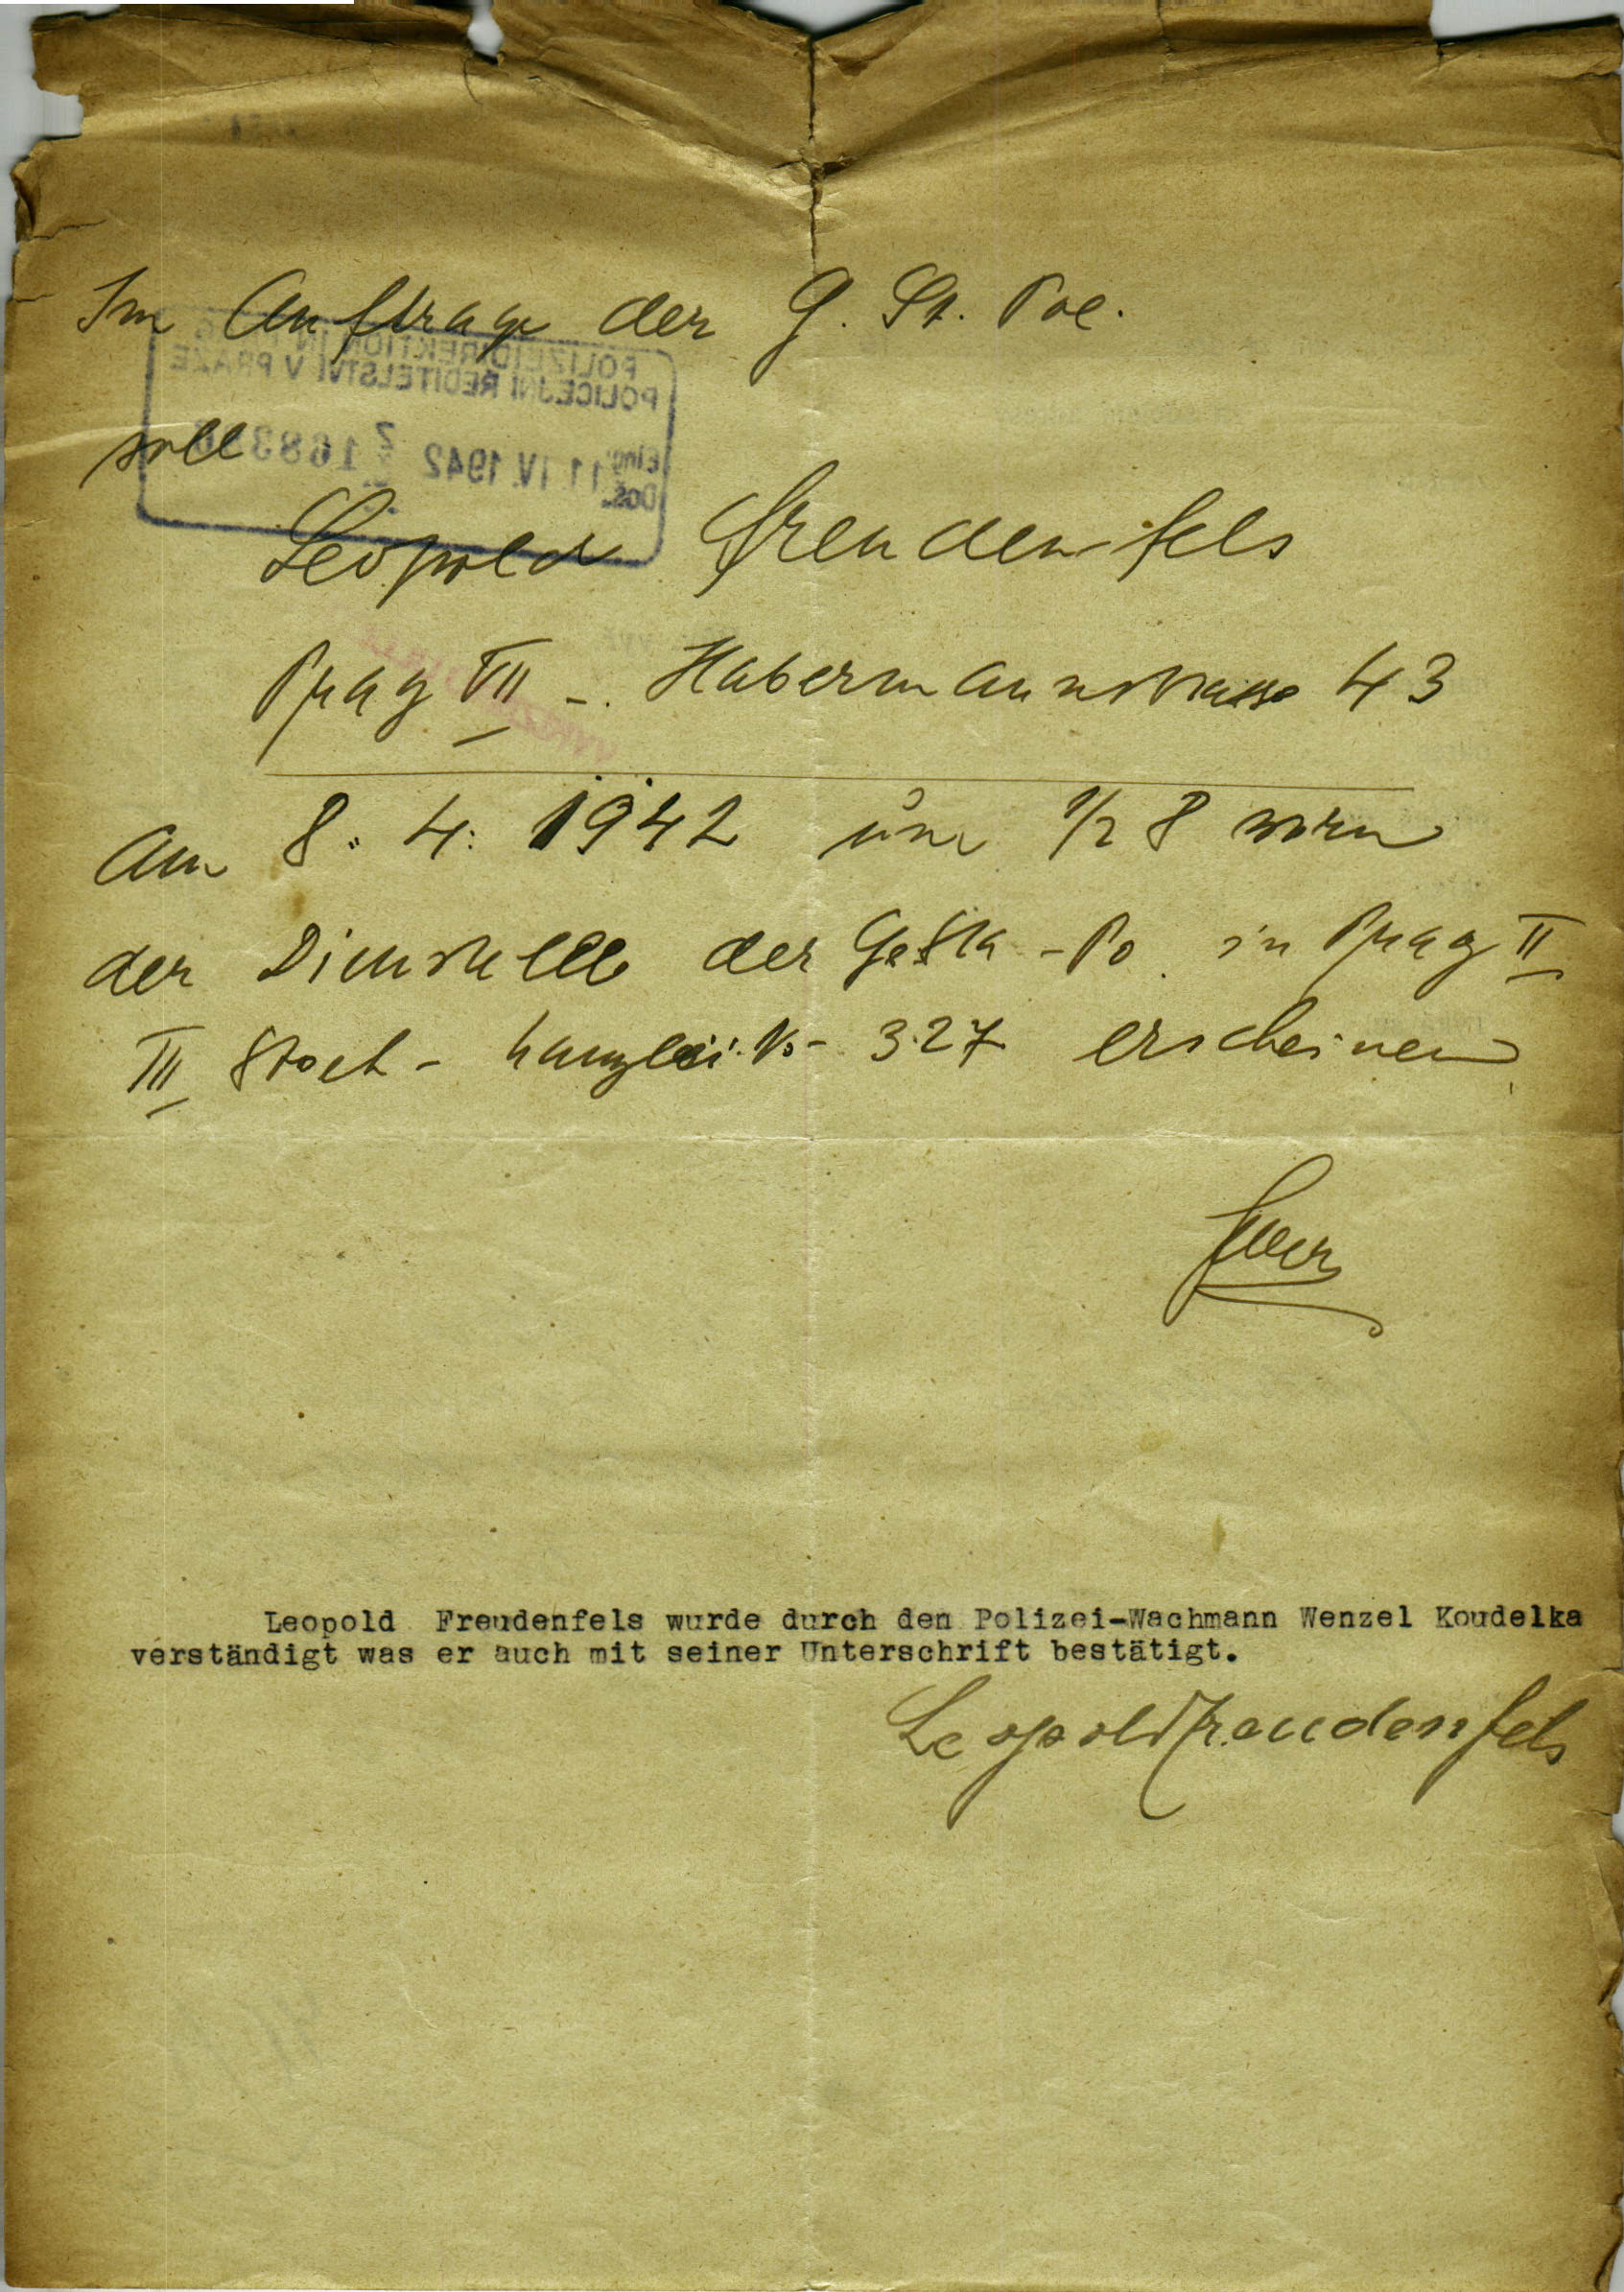 Im Auftrage der G. St. Pol.
POLIZEIDIREKTION IN
POLICEJNÍ ŘEDITELSTVÍ V PRAZE
soll
Eing. 11. IV. 1942
Doš.
Leopold Freudenfels
Prag VII -. Habermannstrasse 43
Am 8. 4. 1942 um 1/2 8 vorm
der Dienstelle der GeSta-Po. in Prag II
III Stock - Kanzlei. No- 327 erscheinen
Leopold Freudenfels wurde durch den Polizei-Wachmann Wenzel Koudelka
verständigt was er auch mit seiner Unterschrift bestätigt.
Leopold Freudenfels